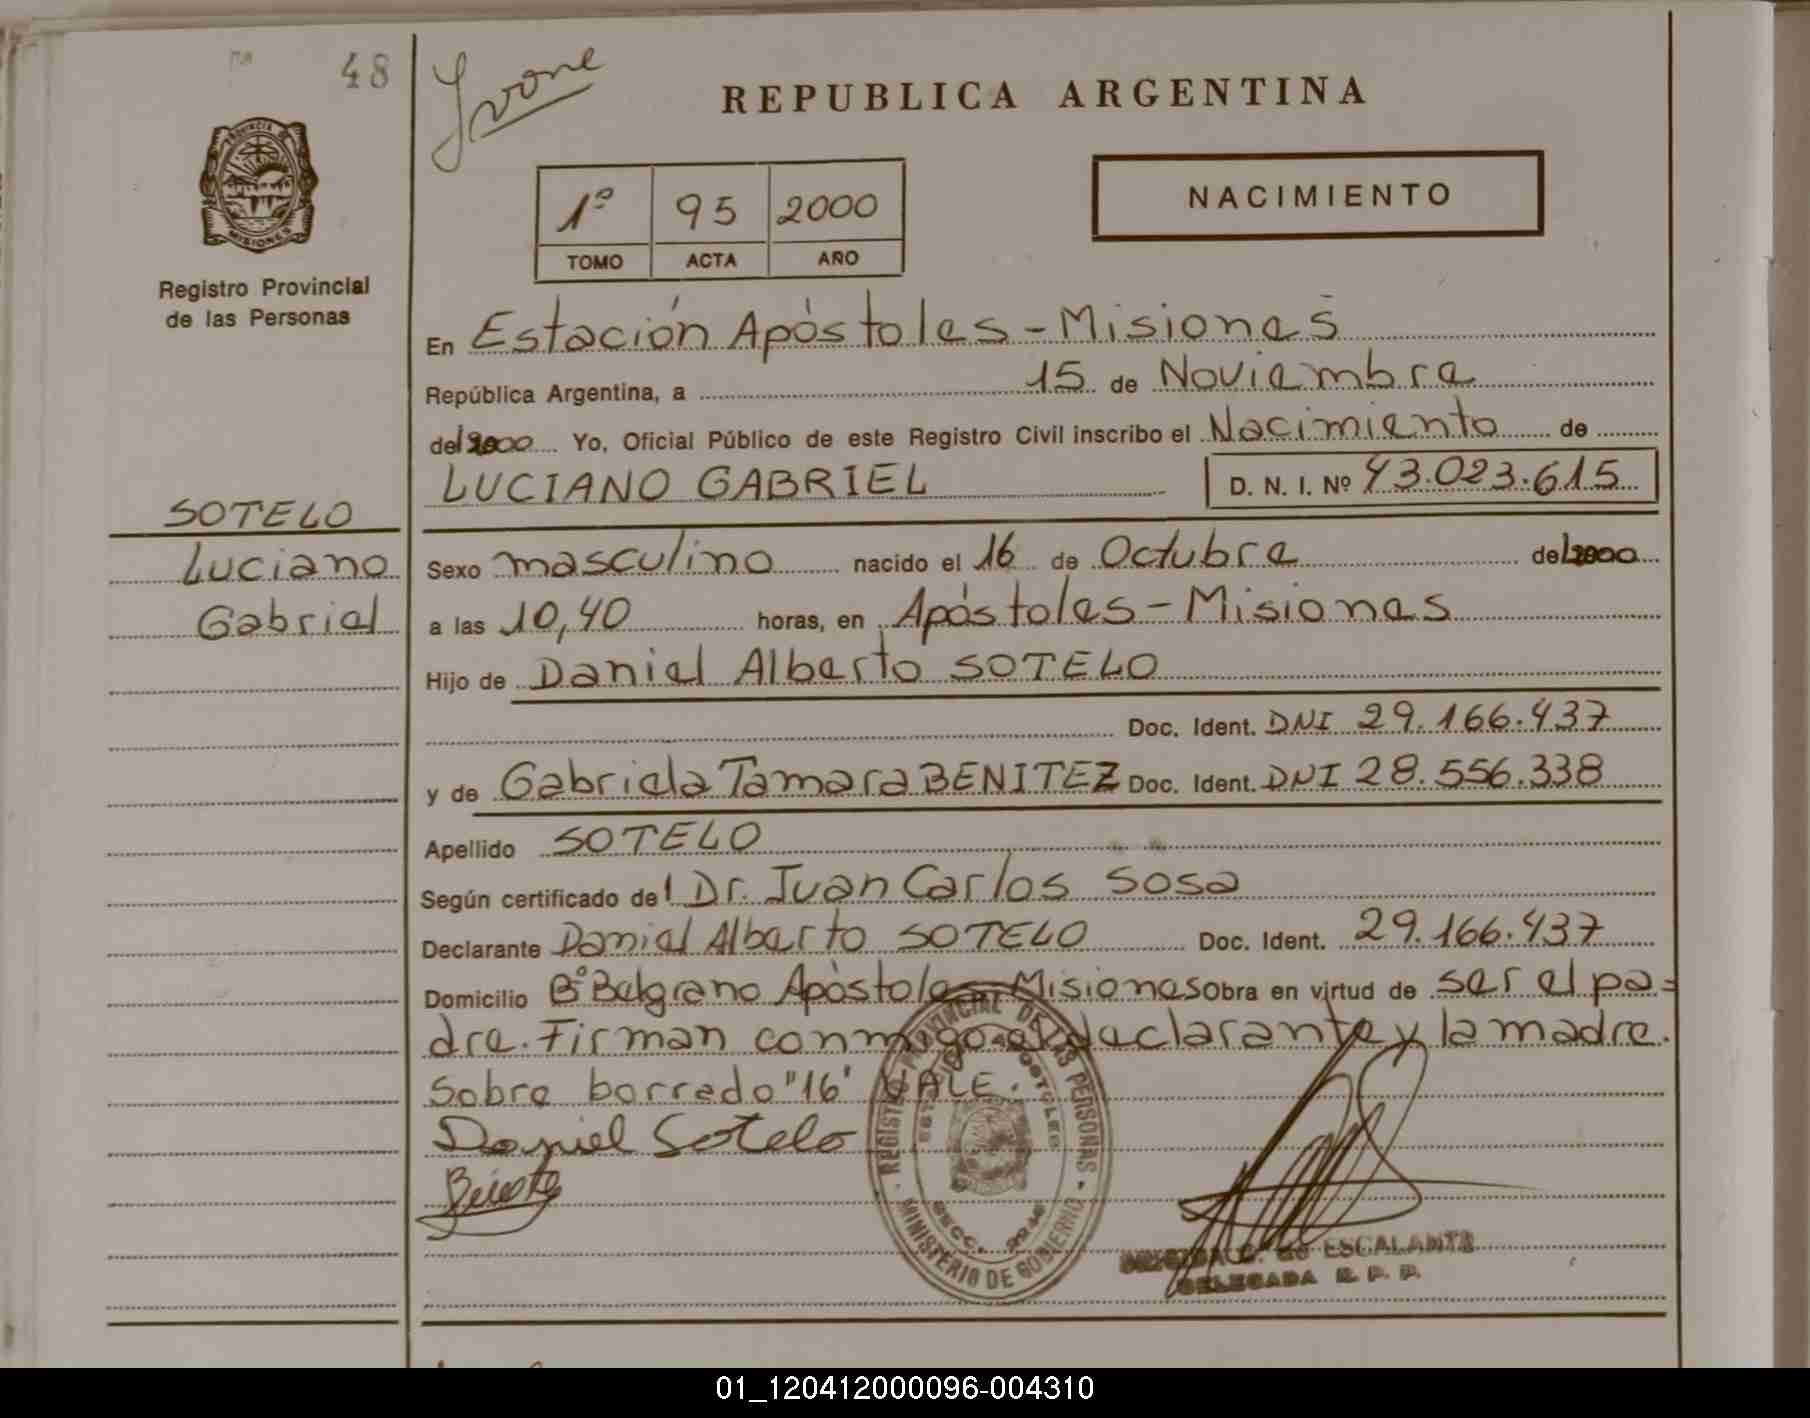 48
Ivone
REPUBLICA ARGENTINA
PROVINCIA DE
MISIONES
1º 95 2000
TOMO ACTA AÑO
NACIMIENTO
Registro Provincial
de las Personas
En Estación Apóstoles - Misiones
República Argentina, a 15 de Noviembre
del 2000 Yo, Oficial Público de este Registro Civil inscribo el Nacimiento de
LUCIANO GABRIEL D. N. I. Nº 43.023.615
SOTELO
Luciano
Gabriel
Sexo masculino nacido el 16 de Octubre del 2000
a las 10,40 horas, en Apóstoles - Misiones
Hijo de Daniel Alberto SOTELO
Doc. Ident. DNI 29.166.437
y de Gabriela Tamara BENITEZ Doc. Ident. DNI 28.556.338
Apellido SOTELO
Según certificado del Dr. Juan Carlos Sosa
Declarante Daniel Alberto SOTELO Doc. Ident. 29.166.437
Domicilio Bº Belgrano Apóstoles - Misiones Obra en virtud de ser el pa=
dre. Firman conmigo el declarante y la madre.
Sobre borrado "16" VALE.
Daniel Sotelo
REGISTRO PROVINCIAL DE LAS PERSONAS
MINISTERIO DE GOBIERNO
DE ESCALANTE
DELEGADA R. P. P.
01_120412000096-004310